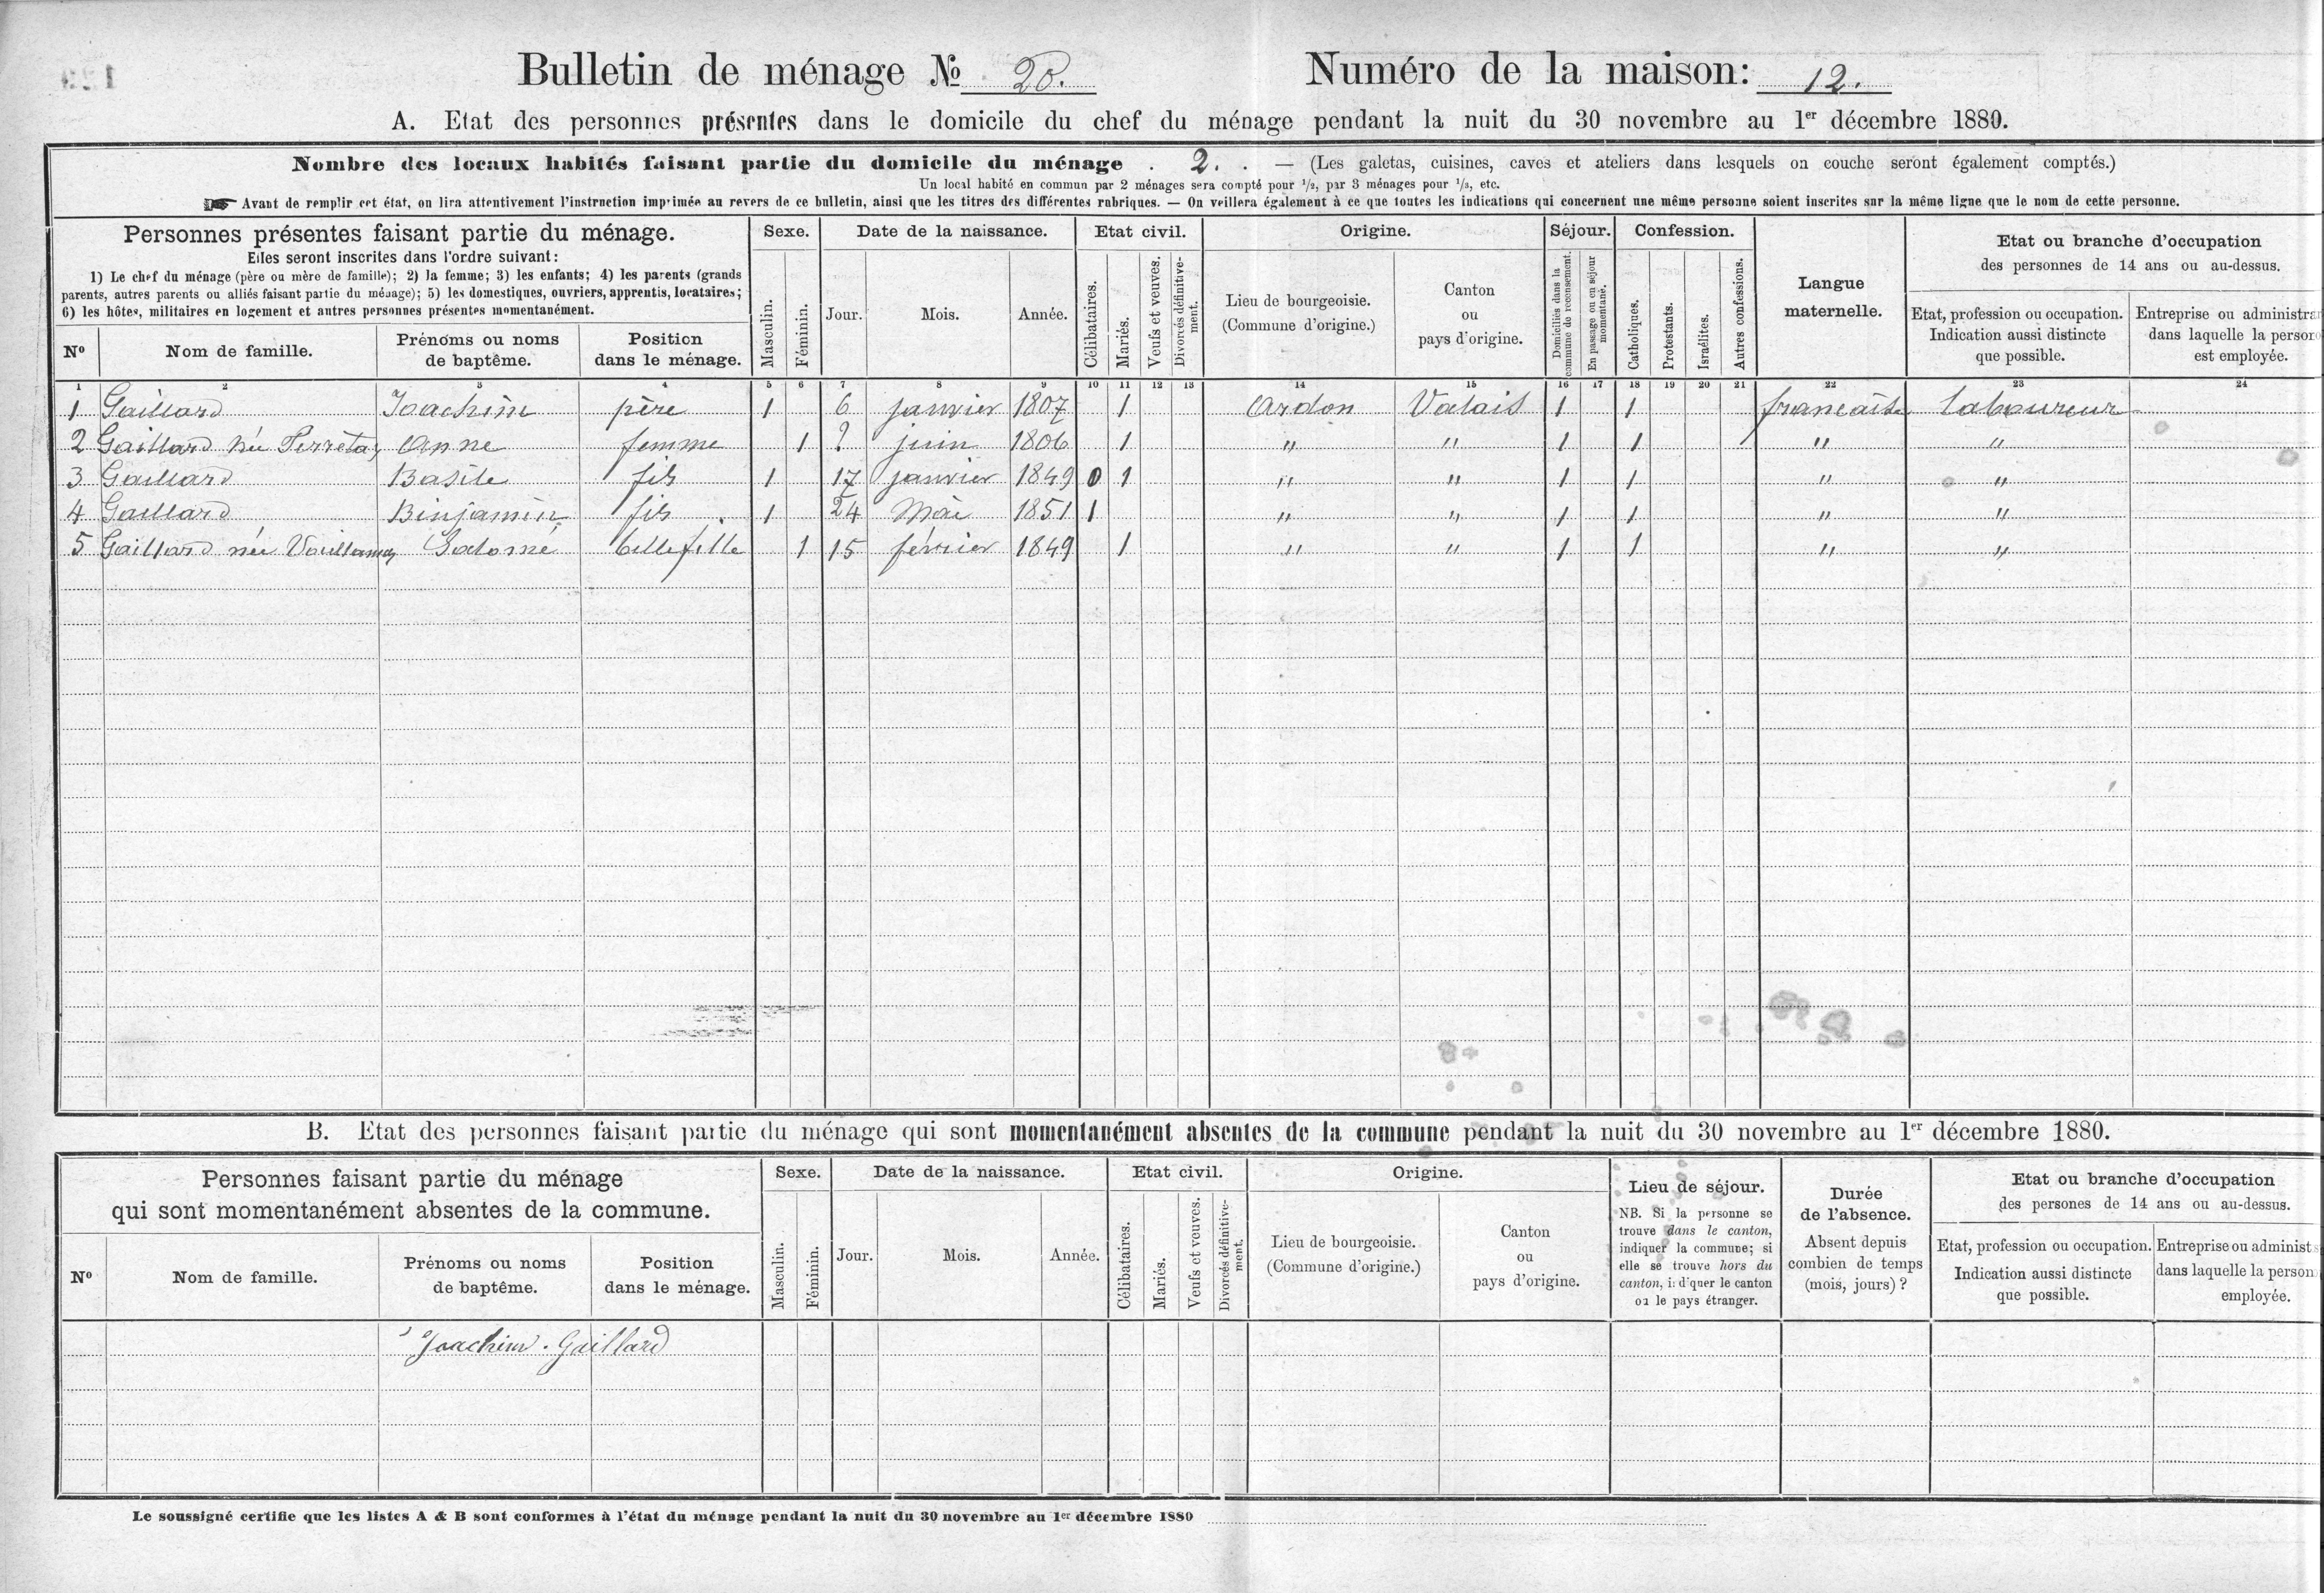 Bulletin de ménage № 20. Numéro de la maison: 12.
A. Etat des personnes présentes dans le domicile du chef du ménage pendant la nuit du 30 novembre au 1er décembre 1880.
Nombre des locaux habités faisant partie du domicile du ménage . 2. . — (Les galetas, cuisines, caves et ateliers dans lesquels on couche seront également comptés.)
Un local habité en commun par 2 ménages sera compté pour 1/2, par 3 ménages pour 1/3, etc.
☛ Avant de remplir cet état, on lira attentivement l'instruction imprimée au revers de ce bulletin, ainsi que les titres des différentes rubriques. — On veillera également à ce que toutes les indications qui concernent une même personne soient inscrites sur la même ligne que le nom de cette personne.
Personnes présentes faisant partie du ménage.
Elles seront inscrites dans l'ordre suivant:
1) Le chef du ménage (père ou mère de famille); 2) la femme; 3) les enfants; 4) les parents (grands
parents, autres parents ou alliés faisant partie du ménage); 5) les domestiques, ouvriers, apprentis, locataires;
6) les hôtes, militaires en logement et autres personnes présentes momentanément.
Nº
Nom de famille.
Prénoms ou noms
de baptême.
Position
dans le ménage.
Sexe.
Masculin.
Féminin.
Date de la naissance.
Jour.
Mois.
Année.
Etat civil.
Célibataires.
Mariés.
Veufs et veuves.
Divorcés définitive-
ment.
Origine.
Lieu de bourgeoisie.
(Commune d'origine.)
Canton
ou
pays d'origine.
Séjour.
Domiciliés dans la
commune de recensement.
En passage ou en séjour
momentané.
Confession.
Catholiques.
Protestants.
Israélites.
Autres confessions.
Langue
maternelle.
Etat ou branche d'occupation
des personnes de 14 ans ou au-dessus.
Etat, profession ou occupation.
Indication aussi distincte
que possible.
Entreprise ou administra
dans laquelle la perso
est employée.
1 2 3 4 5 6 7 8 9 10 11 12 13 14 15 16 17 18 19 20 21 22 23 24
1 Gaillard Joachim père 1 6 janvier 1807 1 Ardon Valais 1 1 francaise laboureur
2 Gaillard née Anne femme 1 ? juin 1806 1 " " 1 1 " "
3 Gaillard Basile fils 1 17 janvier 1849 0 1 " " 1 1 " "
4 Gaillard Binjamin fils 1 24 Mai 1851 1 " " 1 1 " "
5 Gaillard née Salomé bellefille 1 15 février 1849 1 " " 1 1 " "
B. Etat des personnes faisant partie du ménage qui sont momentanément absentes de la commune pendant la nuit du 30 novembre au 1er décembre 1880.
Personnes faisant partie du ménage
qui sont momentanément absentes de la commune.
Nº
Nom de famille.
Prénoms ou noms
de baptême.
Position
dans le ménage.
Sexe.
Masculin.
Féminin.
Date de la naissance.
Jour.
Mois.
Année.
Etat civil.
Célibataires.
Mariés.
Veufs et veuves.
Divorcés définitive-
ment.
Origine.
Lieu de bourgeoisie.
(Commune d'origine.)
Canton
ou
pays d'origine.
Lieu de séjour.
NB. Si la personne se
trouve dans le canton,
indiquer la commune; si
elle se trouve hors du
canton, indiquer le canton
ou le pays étranger.
Durée
de l'absence.
Absent depuis
combien de temps
(mois, jours) ?
Etat ou branche d'occupation
des persones de 14 ans ou au-dessus.
Etat, profession ou occupation.
Indication aussi distincte
que possible.
Entreprise ou administ
dans laquelle la person
employée.
Joachim . Gaillard
Le soussigné certifie que les listes A & B sont conformes à l'état du ménage pendant la nuit du 30 novembre au 1er décembre 1880